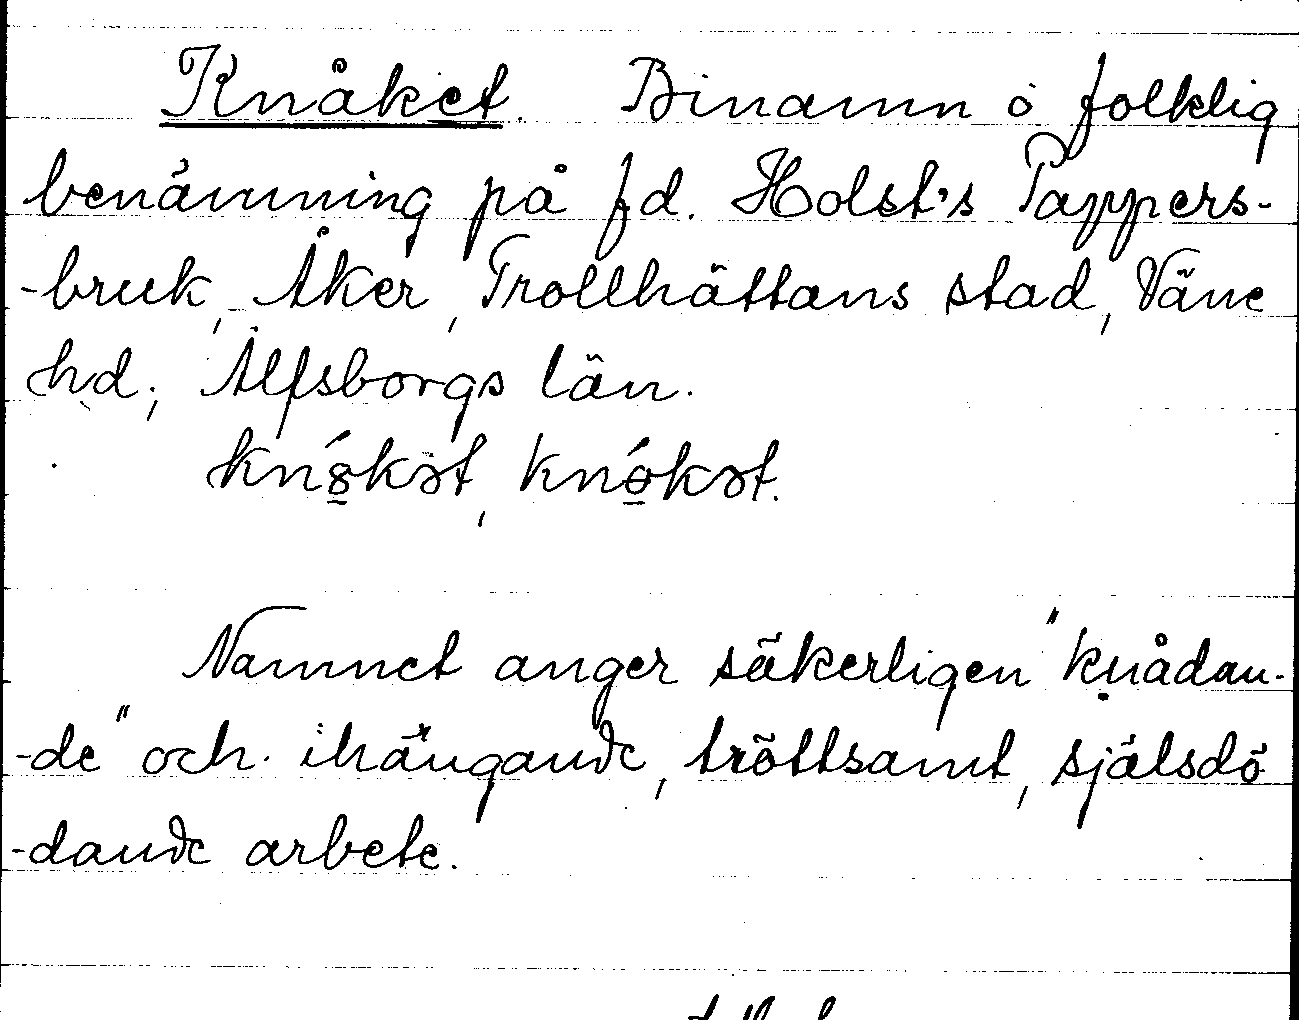 Knåket. Binamn o folklig
benämning på fd. Holst's Pappers-
-bruk, Åker, Trollhättans stad, Väne
hd; Älfsborgs län.
Namnet anger säkerligen "knådan-
-de" och ihängande, tröttsamt, själsdö
-dande arbete.